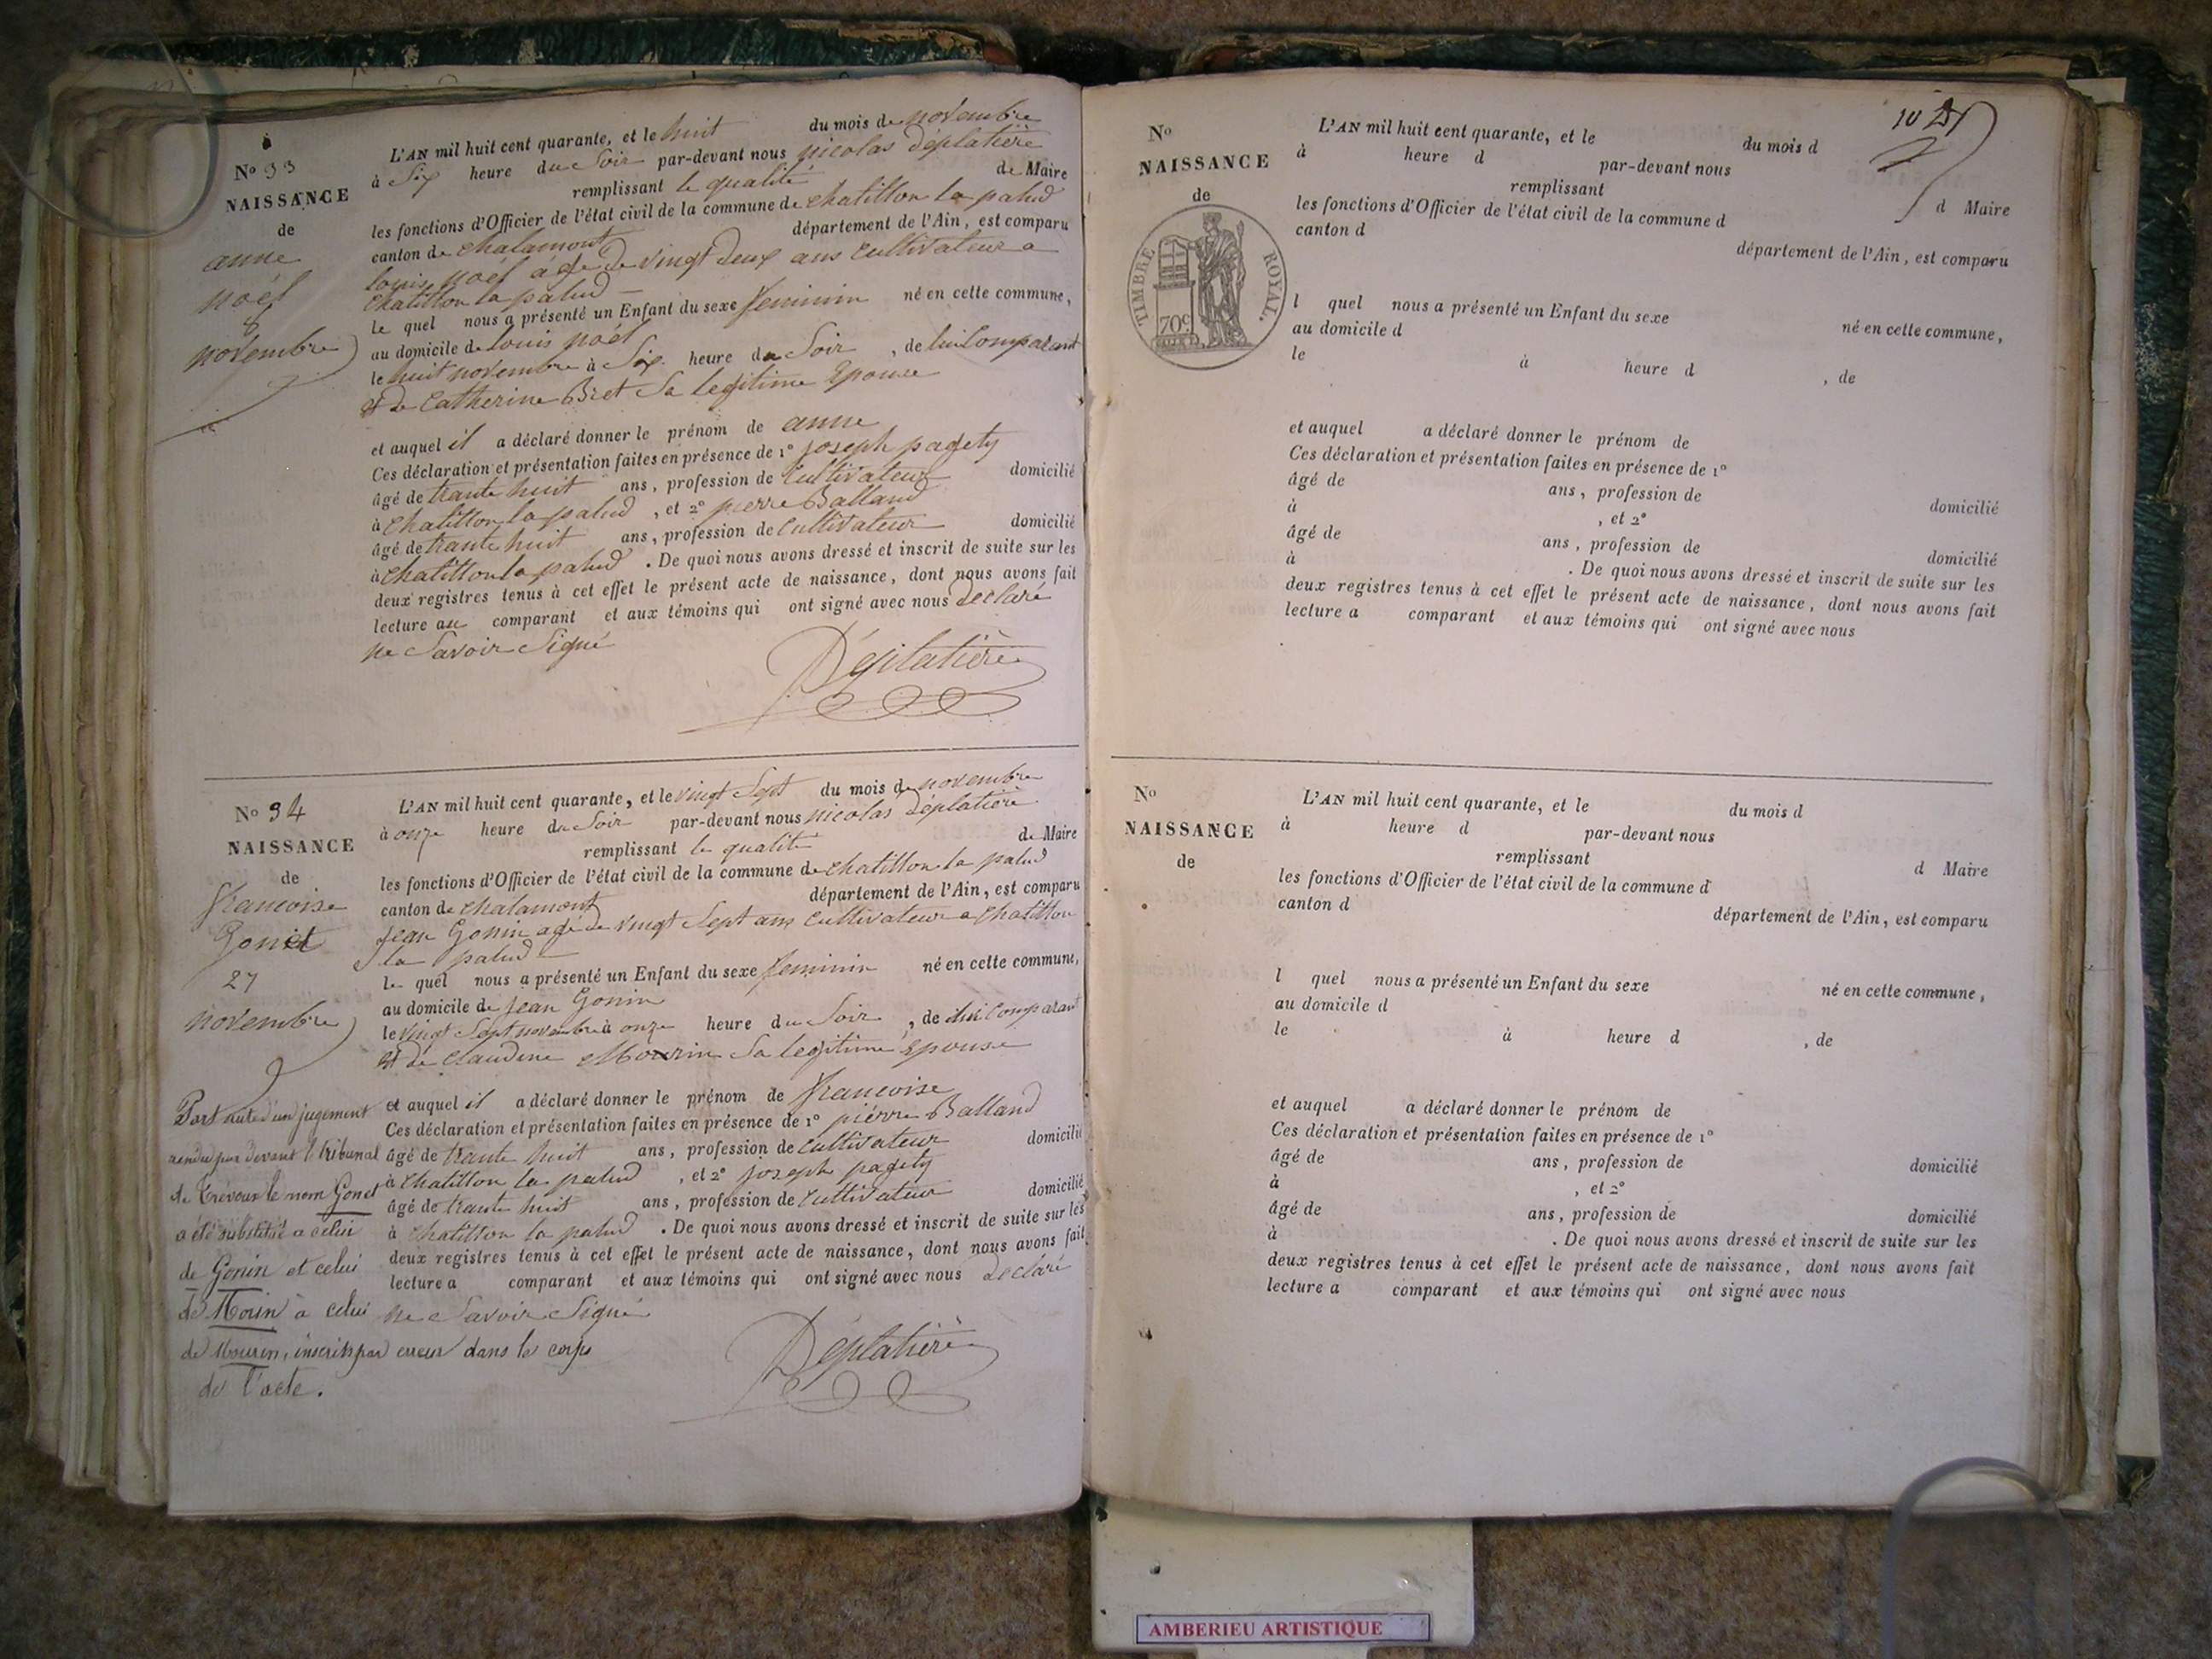 N° 33
NAISSANCE
de
anne
noël
8
novembre
L'AN mil huit cent quarante, et le huit du mois de novembre
à Six heure du Soir par-devant nous nicolas Déplatière
remplissant le qualité de Maire
les fonctions d'Officier de l'état civil de la commune de chatillon la palud
canton de chalamont département de l'Ain, est comparu
louis noël âgé de vingt deux ans cultivateur a
chatillon la palud
le quel nous a présenté un Enfant du sexe feminin né en cette commune,
au domicile de louis noël
le huit novembre à Six heure du Soir, de lui Comparant
et de Catherine Bret Sa legitime Epouse
et auquel il a déclaré donner le prénom de anne
Ces déclaration et présentation faites en présence de 1° joseph pagety
âgé de trante huit ans, profession de Cultivateur domicilié
à Chatillon la palud, et 2° pierre Balland
âgé de trante huit ans, profession de Cultivateur domicilié
à Chatillon la palud. De quoi nous avons dressé et inscrit de suite sur les
deux registres tenus à cet effet le présent acte de naissance, dont nous avons fait
lecture au comparant et aux témoins qui ont signé avec nous Declaré
ne Savoir Signé
Déplatière
N° 34
NAISSANCE
de
francoise
Gonet
27
novembre
L'AN mil huit cent quarante, et le vingt Sept du mois de novembre
à onze heure du Soir par-devant nous nicolas Déplatière
remplissant le qualité de Maire
les fonctions d'Officier de l'état civil de la commune de chatillon la palud
canton de chalamont département de l'Ain, est comparu
jean Gonin agé de vingt Sept ans cultivateur a Chatillon
la palud
le quel nous a présenté un Enfant du sexe feminin né en cette commune,
au domicile de jean Gonin
le vingt Sept novembre à onze heure du Soir, de lui Comparant
et de Claudine Mourin Sa legitime Epouse
et auquel il a déclaré donner le prénom de francoise
Ces déclaration et présentation faites en présence de 1° pierre Balland
âgé de trante huit ans, profession de Cultivateur domicilié
à Chatillon la palud, et 2° joseph pagety
âgé de trante huit ans, profession de Cultivateur domicilié
à Chatillon la palud. De quoi nous avons dressé et inscrit de suite sur les
deux registres tenus à cet effet le présent acte de naissance, dont nous avons fait
lecture a comparant et aux témoins qui ont signé avec nous Declaré
ne Savoir Signé
Déplatière
Part suite d'un jugement
rendu par devant le tribunal
de Trévoux le nom Gonet
a été substitué a celui
de Gonin et celui
de Morin à celui
de Mourin, inscrits par erreur dans le corps
de l'acte.
N°
NAISSANCE
de
TIMBRE ROYAL.
70c
L'AN mil huit cent quarante, et le du mois d
à heure d par-devant nous
remplissant d Maire
les fonctions d'Officier de l'état civil de la commune d
canton d département de l'Ain, est comparu
l quel nous a présenté un Enfant du sexe né en cette commune,
au domicile d
le à heure d , de
et auquel a déclaré donner le prénom de
Ces déclaration et présentation faites en présence de 1°
âgé de ans, profession de domicilié
à , et 2°
âgé de ans, profession de domicilié
à . De quoi nous avons dressé et inscrit de suite sur les
deux registres tenus à cet effet le présent acte de naissance, dont nous avons fait
lecture a comparant et aux témoins qui ont signé avec nous
N°
NAISSANCE
de
L'AN mil huit cent quarante, et le du mois d
à heure d par-devant nous
remplissant d Maire
les fonctions d'Officier de l'état civil de la commune d
canton d département de l'Ain, est comparu
l quel nous a présenté un Enfant du sexe né en cette commune,
au domicile d
le à heure d , de
et auquel a déclaré donner le prénom de
Ces déclaration et présentation faites en présence de 1°
âgé de ans, profession de domicilié
à , et 2°
âgé de ans, profession de domicilié
à . De quoi nous avons dressé et inscrit de suite sur les
deux registres tenus à cet effet le présent acte de naissance, dont nous avons fait
lecture a comparant et aux témoins qui ont signé avec nous
AMBERIEU ARTISTIQUE